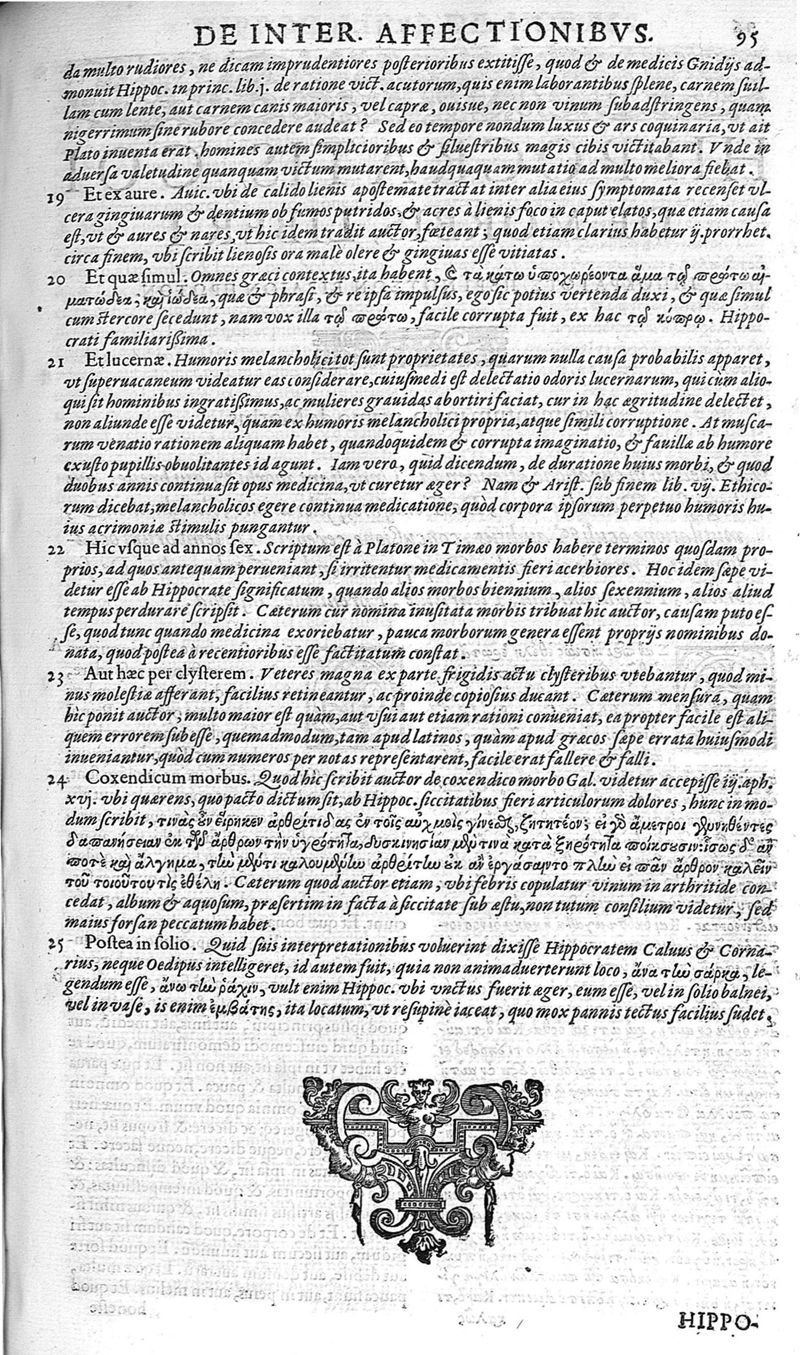 DE INTER. AFFECTIONIBVS. 95
da multo rudiores, ne dicam imprudentiores posterioribus extitisse, quod & de medicis Gnidijs ad-
monuit Hippoc. in princ. lib. j. de ratione vict. acutorum, quis enim laborantibus splene, carnem suil-
lam cum lente, aut carnem canis maioris, vel capræ, ouisue, nec non vinum subadstringens, quam
nigerrimum sine rubore concedere audeat? Sed eo tempore nondum luxus & ars coquinaria, vt ait
Plato inuenta erat, homines autem simplicioribus & siluestribus magis cibis victitabant. Vnde in
aduersa valetudine quanquam victum mutarent, haudquaquam mutatio ad multo meliora fiebat.
19 Et ex aure. Auic. vbi de calido lienis apostemate tractat inter alia eius symptomata recenset vl-
cera gingiuarum & dentium ob fumos putridos, & acres à lienis foco in caput elatos, quæ etiam causa
est, vt & aures & nares, vt hic idem tradit auctor, fœteant; quod etiam clarius habetur ij. prorrhet.
circa finem, vbi scribit lienosis ora malè olere & gingiuas esse vitiatas.
20 Et quæ simul. Omnes græci contextus ita habent, ϗ τὰ κάτω ὑποχωρέοντα ἅμα τῷ πρώτῳ αἱ-
ματώδεα; καὶ ἰώδεα, quæ & phrasi, & re ipsa impulsus, ego sic potius vertenda duxi, & quæ simul
cum stercore secedunt, nam vox illa τῷ πρώτῳ, facile corrupta fuit, ex hac τῷ κόπρῳ. Hippo-
crati familiarißima.
21 Et lucernæ. Humoris melancholici tot sunt proprietates, quarum nulla causa probabilis apparet,
vt superuacaneum videatur eas considerare, cuiusmodi est delectatio odoris lucernarum, qui cum alio-
qui sit hominibus ingratissimus, ac mulieres grauidas abortiri faciat, cur in hac ægritudine delectet,
non aliunde esse videtur, quàm ex humoris melancholici propria, atque simili corruptione. At musca-
rum venatio rationem aliquam habet, quandoquidem & corrupta imaginatio, & fauillæ ab humore
exusto pupillis obuolitantes id agunt. Iam vero, quid dicendum, de duratione huius morbi, & quod
duobus annis continua sit opus medicina, vt curetur æger? Nam & Arist. sub finem lib. vij. Ethico-
rum dicebat, melancholicos egere continua medicatione, quòd corpora ipsorum perpetuo humoris hu-
ius acrimoniæ stimulis pungantur.
22 Hic vsque ad annos sex. Scriptum est à Platone in Timæo morbos habere terminos quosdam pro-
prios, ad quos antequam perueniant, si irritentur medicamentis fieri acerbiores. Hoc idem sæpe vi-
detur esse ab Hippocrate significatum, quando alios morbos biennium, alios sexennium, alios aliud
tempus perdurare scripsit. Cæterum cur nomina inusitata morbis tribuat hic auctor, causam puto es-
se, quod tunc quando medicina exoriebatur, pauca morborum genera essent proprijs nominibus do-
nata, quod postea à recentioribus esse factitatum constat.
23 Aut hæc per clysterem. Veteres magna ex parte frigidis actu clysteribus vtebantur, quod mi-
nus molestiæ afferant, facilius retineantur, ac proinde copiosius ducant. Cæterum mensura, quam
hic ponit auctor, multo maior est quàm, aut vsui aut etiam rationi conueniat, ea propter facile est ali-
quem errorem subesse, quemadmodum, tam apud latinos, quàm apud græcos sæpe errata huiusmodi
inueniantur, quòd cum numeros per notas representarent, facile erat fallere & falli.
24 Coxendicum morbus. Quod hic scribit auctor de coxendico morbo Gal. videtur accepisse iij. aph.
xvj. vbi quærens, quo pacto dictum sit, ab Hippoc. siccitatibus fieri articulorum dolores, hunc in mo-
dum scribit, τίνας ἓν εἴρηκεν ἀρθρίτιδας ἐν τοῖς αὐχμοῖς γίνεσθαι, ζητητέον; εἰ γὰρ ἄμετροι γεννηθέντες
δαπανήσειαν ἐκ τῶν ἄρθρων τὴν ὑγρότητα, δυσκινησίαν μέν τινα κατὰ ξηρότητα ποιήσεσιν; ἴσως δὲ ἄν
ποτὲ καὶ ἄλγημα, τὴν μέντι καλουμένην ἀρθρῖτιν ἐκ ἂν ἐργάσαιντο πλὴν εἰ πᾶν ἄρθρον καλεῖν
τοῦ τοιούτου τὶς ἐθέλῃ. Cæterum quod auctor etiam, vbi febris copulatur vinum in arthritide con-
cedat, album & aquosum, præsertim in facta à siccitate sub æstu, non tutum consilium videtur, sed
maius forsan peccatum habet.
25 Postea in solio. Quid suis interpretationibus voluerint dixisse Hippocratem Caluus & Corna-
rius, neque Oedipus intelligeret, id autem fuit, quia non animaduerterunt loco, ἄνα τὴν σάρκα, le-
gendum esse, ἄνω τὴν ῥάχιν, vult enim Hippoc. vbi vnctus fuerit æger, eum esse, vel in solio balnei,
vel in vase, is enim ἐμβάτης, ita locatum, vt resupinè iaceat, quo mox pannis tectus facilius sudet.
HIPPO-